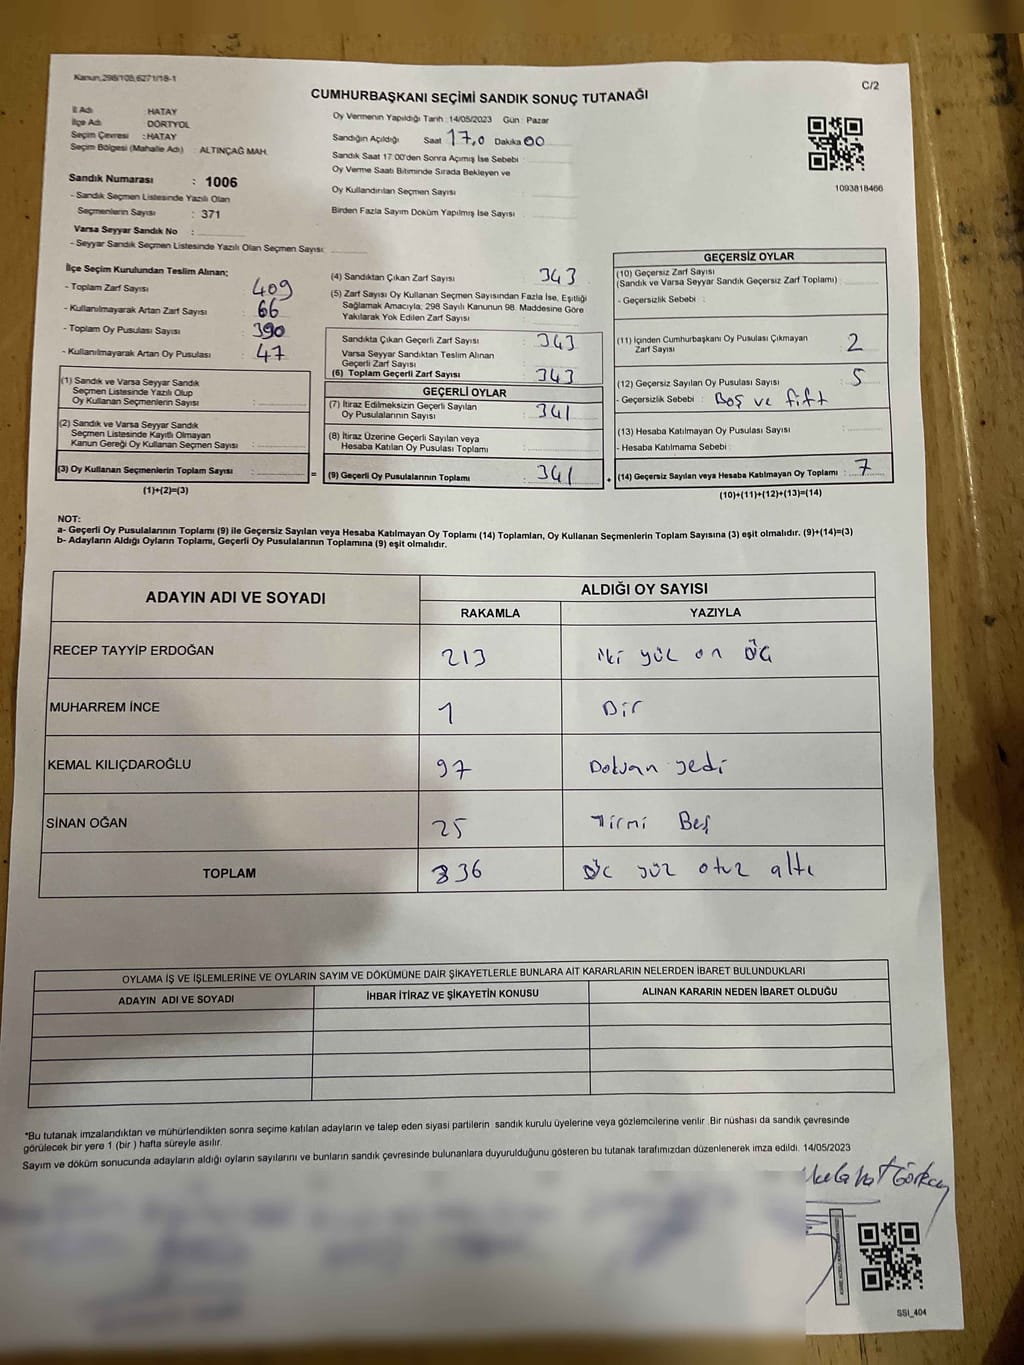 Kanun,298/105,6271/18-1
C/2
CUMHURBAŞKANI SEÇİMİ SANDIK SONUÇ TUTANAĞI
İl Adı : HATAY
İlçe Adı : DÖRTYOL
Seçim Çevresi : HATAY
Seçim Bölgesi (Mahalle Adı) : ALTINÇAĞ MAH.
Sandık Numarası : 1006
- Sandık Seçmen Listesinde Yazılı Olan
Seçmenlerin Sayısı : 371
Varsa Seyyar Sandık No :
- Seyyar Sandık Seçmen Listesinde Yazılı Olan Seçmen Sayısı:
Oy Vermenin Yapıldığı Tarih :14/05/2023 Gün : Pazar
Sandığın Açıldığı Saat 17,0 Dakika 00
Sandık Saat 17:00'den Sonra Açımış İse Sebebi
Oy Verme Saati Bitiminde Sırada Bekleyen ve
Oy Kullandırılan Seçmen Sayısı
Birden Fazla Sayım Döküm Yapılmış İse Sayısı
1093818466
İlçe Seçim Kurulundan Teslim Alınan;
- Toplam Zarf Sayısı : 409
- Kullanılmayarak Artan Zarf Sayısı : 66
- Toplam Oy Pusulası Sayısı : 390
- Kullanılmayarak Artan Oy Pusulası : 47
(1) Sandık ve Varsa Seyyar Sandık
Seçmen Listesinde Yazılı Olup
Oy Kullanan Seçmenlerin Sayısı :
(2) Sandık ve Varsa Seyyar Sandık
Seçmen Listesinde Kayıtlı Olmayan
Kanun Gereği Oy Kullanan Seçmen Sayısı :
(3) Oy Kullanan Seçmenlerin Toplam Sayısı :
(1)+(2)=(3)
(4) Sandıktan Çıkan Zarf Sayısı : 343
(5) Zarf Sayısı Oy Kullanan Seçmen Sayısından Fazla İse, Eşitliği
Sağlamak Amacıyla; 298 Sayılı Kanunun 98. Maddesine Göre
Yakılarak Yok Edilen Zarf Sayısı :
Sandıkta Çıkan Geçerli Zarf Sayısı : 343
Varsa Seyyar Sandıktan Teslim Alınan
Geçerli Zarf Sayısı :
(6) Toplam Geçerli Zarf Sayısı : 343
GEÇERLİ OYLAR
(7) İtiraz Edilmeksizin Geçerli Sayılan
Oy Pusulalarının Sayısı : 341
(8) İtiraz Üzerine Geçerli Sayılan veya
Hesaba Katılan Oy Pusulası Toplamı :
= (9) Geçerli Oy Pusulalarının Toplamı : 341
GEÇERSİZ OYLAR
(10) Geçersiz Zarf Sayısı
(Sandık ve Varsa Seyyar Sandık Geçersiz Zarf Toplamı) :
- Geçersizlik Sebebi :
(11) İçinden Cumhurbaşkanı Oy Pusulası Çıkmayan
Zarf Sayısı : 2
(12) Geçersiz Sayılan Oy Pusulası Sayısı : 5
- Geçersizlik Sebebi : Boş ve fift
(13) Hesaba Katılmayan Oy Pusulası Sayısı :
- Hesaba Katılmama Sebebi :
+ (14) Geçersiz Sayılan veya Hesaba Katılmayan Oy Toplamı : 7
(10)+(11)+(12)+(13)=(14)
NOT:
a- Geçerli Oy Pusulalarının Toplamı (9) ile Geçersiz Sayılan veya Hesaba Katılmayan Oy Toplamı (14) Toplamları, Oy Kullanan Seçmenlerin Toplam Sayısına (3) eşit olmalıdır. (9)+(14)=(3)
b- Adayların Aldığı Oyların Toplamı, Geçerli Oy Pusulalarının Toplamına (9) eşit olmalıdır.
ADAYIN ADI VE SOYADI
ALDIĞI OY SAYISI
RAKAMLA YAZIYLA
RECEP TAYYİP ERDOĞAN 213 iki yüz on üç
MUHARREM İNCE 1 Bir
KEMAL KILIÇDAROĞLU 97 Doksan yedi
SİNAN OĞAN 25 Yirmi Beş
TOPLAM 336 üç yüz otuz altı
OYLAMA İŞ VE İŞLEMLERİNE VE OYLARIN SAYIM VE DÖKÜMÜNE DAİR ŞİKAYETLERLE BUNLARA AİT KARARLARIN NELERDEN İBARET BULUNDUKLARI
ADAYIN ADI VE SOYADI İHBAR İTİRAZ VE ŞİKAYETİN KONUSU ALINAN KARARIN NEDEN İBARET OLDUĞU
*Bu tutanak imzalandıktan ve mühürlendikten sonra seçime katılan adayların ve talep eden siyasi partilerin sandık kurulu üyelerine veya gözlemcilerine verilir .Bir nüshası da sandık çevresinde
görülecek bir yere 1 (bir ) hafta süreyle asılır.
Sayım ve döküm sonucunda adayların aldığı oyların sayılarını ve bunların sandık çevresinde bulunanlara duyurulduğunu gösteren bu tutanak tarafımızdan düzenlenerek imza edildi. 14/05/2023
SSI_404